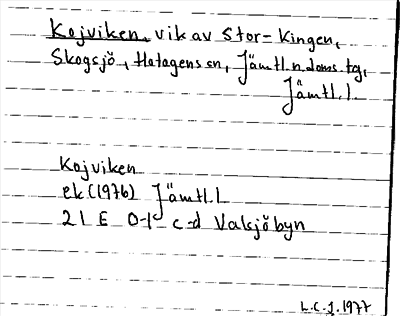 Kojviken, vik av Stor-Kingen,
Skogsjö, Hotagens sn, Jämtl. n. doms. tg,
Jämtl. l.
Kojviken
ek (1976) Jämtl. l
21 E 0-1 c-d Valsjöbyn
L.C.J. 1977